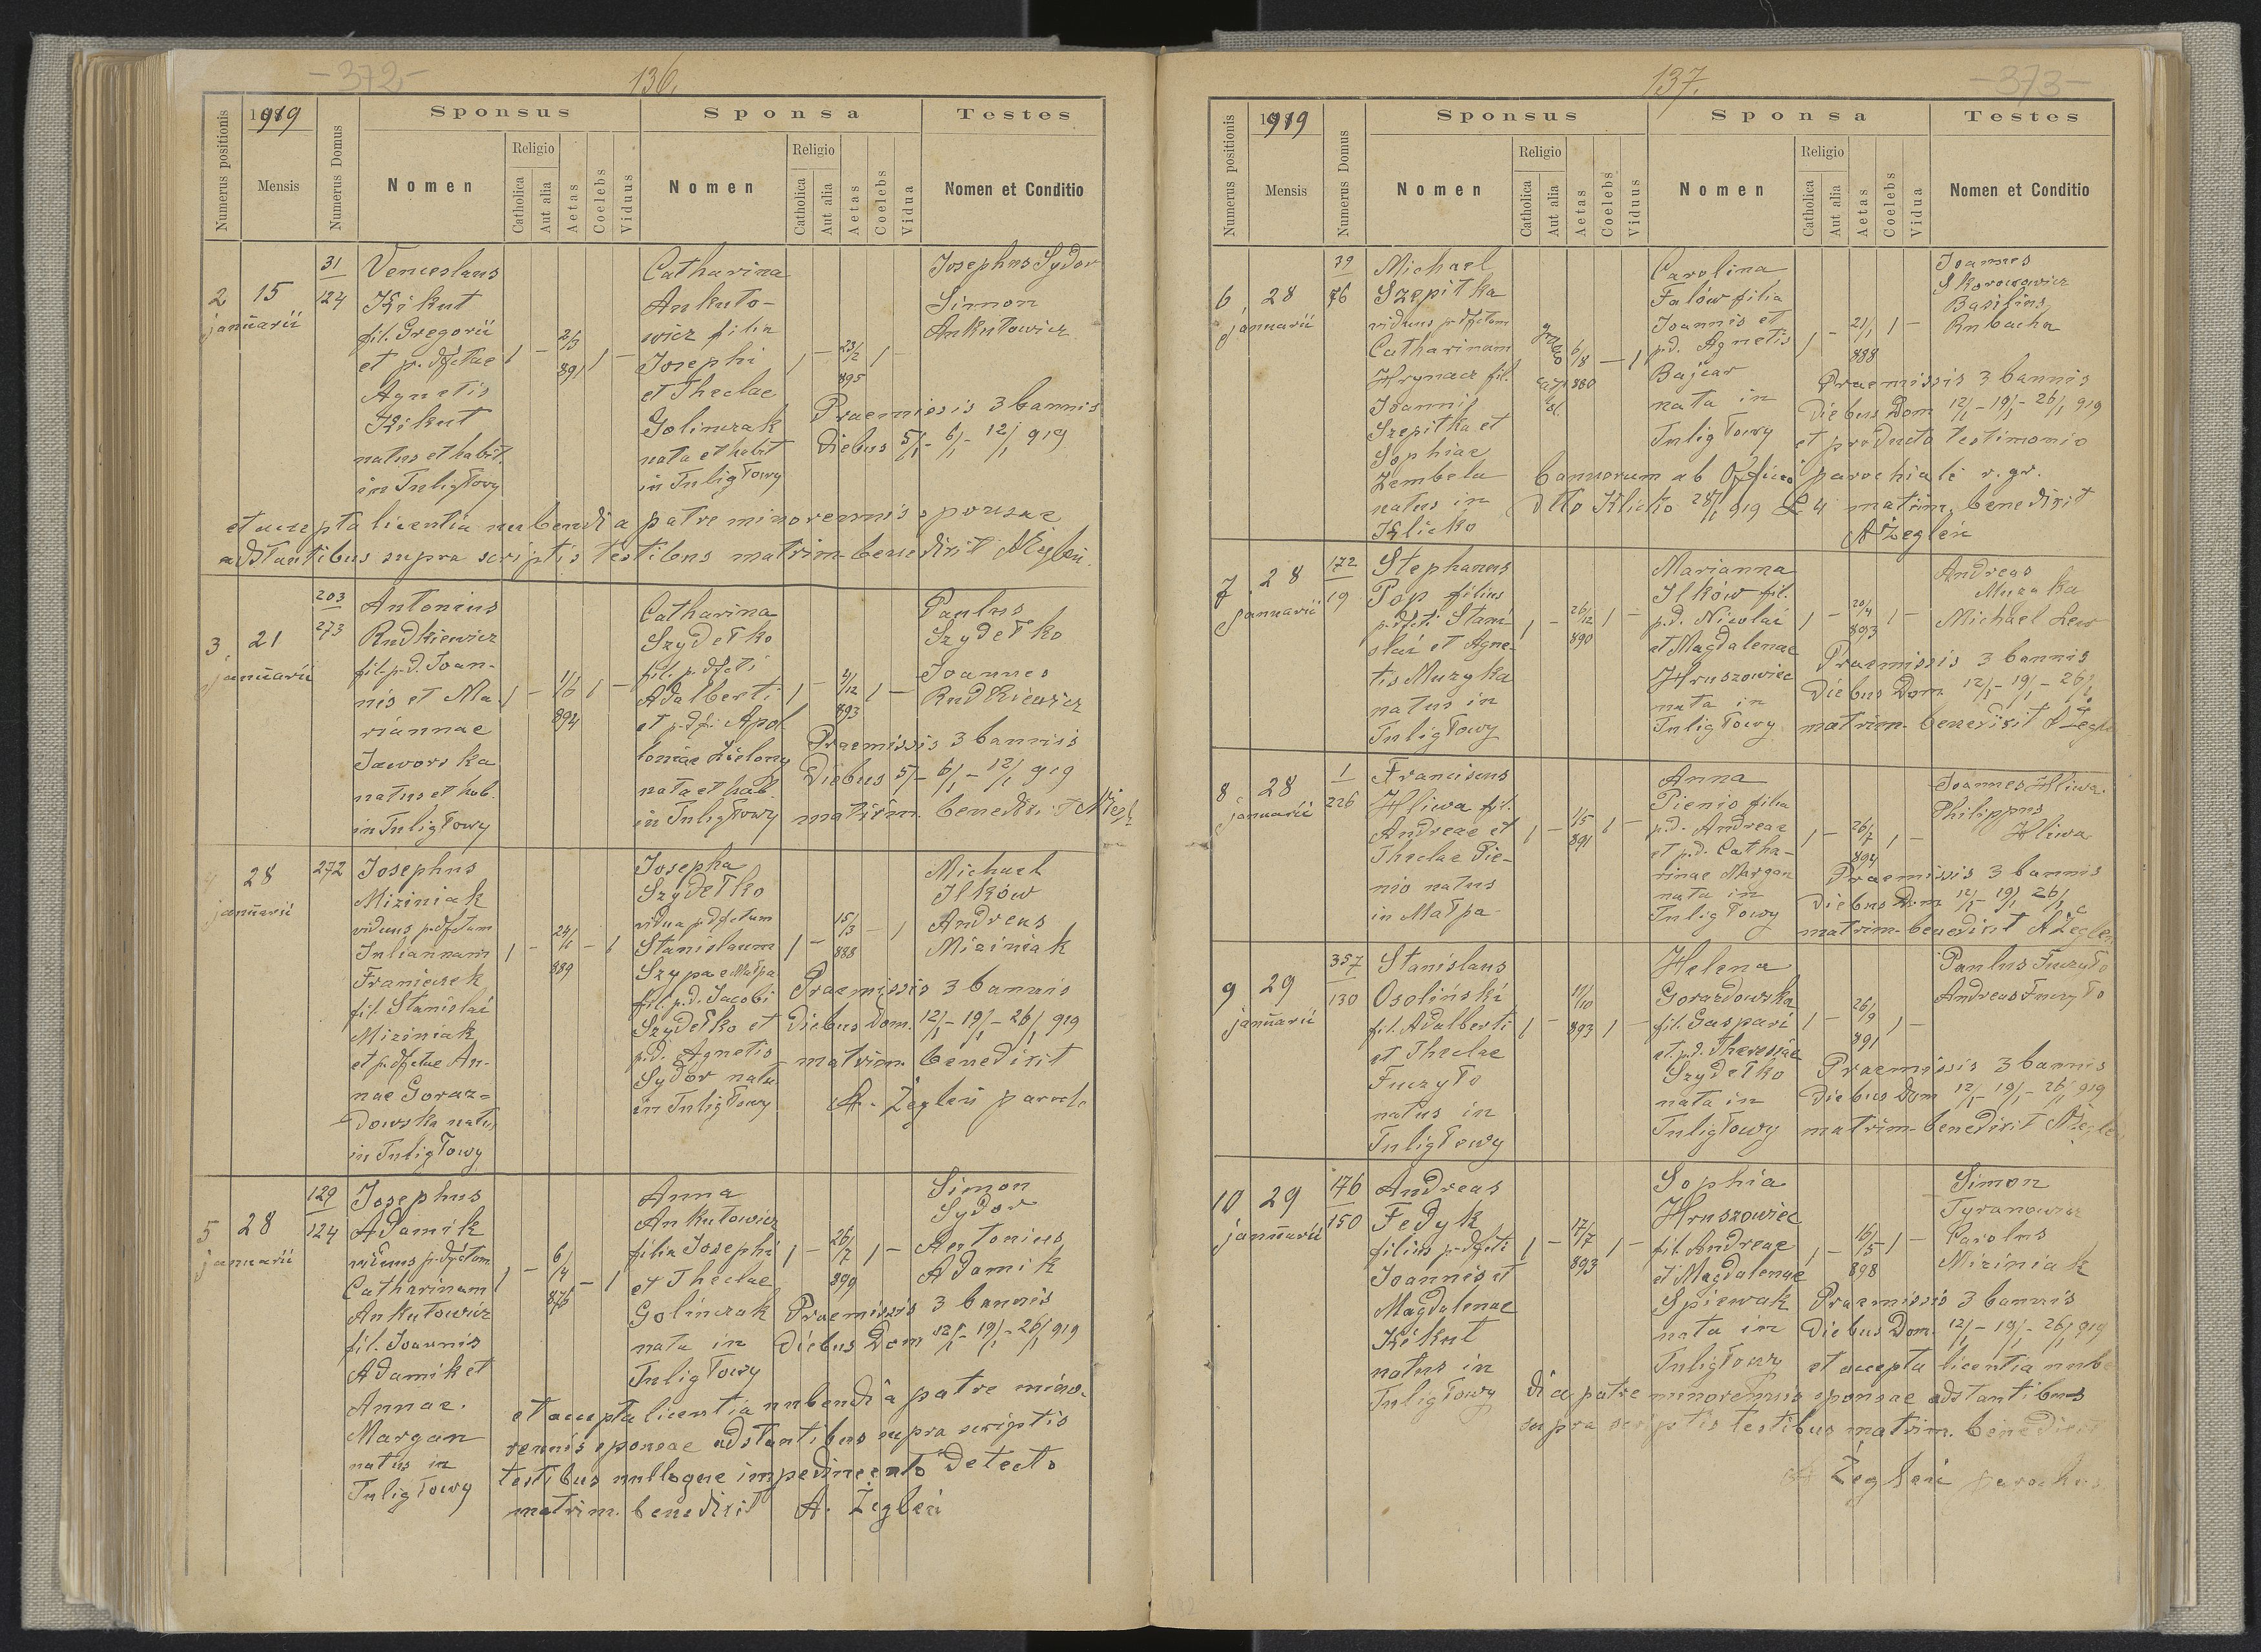 -372-
136.
Numerus positionis
1919
Mensis
Numerus Domus
Sponsus
Nomen
Religio
Catholica
Aut alia
Aetas
Coelebs
Vidus
Sponsa
Nomen
Religio
Catholica
Aut alia
Aetas
Coelebs
Vidua
Testes
Nomen et Conditio
2 15 januarii
31
124
Venceslaus
Kikut
fil. Gregorii
et p. dfctae
Agnetis
Kikut
natus et habit.
in Tuligłowy
1 - 2/3 891 1 -
Catharina
Ankuto-
wicz filia
Josephi
et Theclae
Golinczak
nata et habit
in Tuligłowy
1 - 23/2 895 1 -
Josephus Sydor
Simon
Ankutowicz
Praemissis 3 bannis
diebus 5/1 - 6/1 - 12/1 919
et accepta licentia nubendi a patre minorennis sponsae
adstantibus supra scriptis testibus matrim. benedixit AŻegleń
3 21 januarii
203
273
Antonius
Rudkiewicz
fil. p. d. Joan-
nis et Ma-
riannae
Jaworska
natus et hab.
in Tuligłowy
1 - 1/6 894 1 -
Catharina
Szydełko
fil. p. dfcti
Adalberti
et p. df. Apol
loniae Zielony
nata et hab.
in Tuligłowy
1 - 4/12 893 1 -
Paulus
Szydełko
Joannes
Rudkiewicz
Praemissis 3 bannis
diebus 5/1 - 6/1 - 12/1 919
matrim. benedixit AŻegl
4 28 januarii
272
Josephus
Miziniak
viduus p. dfctam
Juliannam
Franciszek
fil. Stanislai
Miziniak
et p. dfctae An-
nae Goraz-
dowska natus
in Tuligłowy
1 - 24/1 889 - 1
Josepha
Szydełko
vidua p dfctum
Stanislaum
Szypa e Małpa
fil. p. d. Jacobi
Szydełko et
p. d. Agnetis
Sydor nata
in Tuligłowy
1 - 15/3 888 - 1
Michael
Ilków
Andreas
Miziniak
Praemissis 3 bannis
diebus Dom. 12/1 - 19/1 - 26/1 919
matrim. benedixit
A. Żegleń paroch
5 28 januarii
129
124
Josephus
Adamik
viduus p. dfctam
Catharinam
Ankutowicz
fil. Joannis
Adamik et
Annae
Margan
natus in
Tuligłowy
1 - 6/4 876 - 1
Anna
Ankutowicz
filia Josephi
et Theclae
Golinczak
nata in
Tuligłowy
1 - 26/7 899 1 -
Simon
Sydor
Antonius
Adamik
Praemissis 3 bannis
diebus Dom 12/1 - 19/1 - 26/1 919
et accepta licentia nubendi a patre mino-
rennis sponsae adstantibus supra scriptis
testibus nulloque impedimento detecto
matrim. benedixit A. Żegleń
137.
-373-
Numerus positionis
1919
Mensis
Numerus Domus
Sponsus
Nomen
Religio
Catholica
Aut alia
Aetas
Coelebs
Vidus
Sponsa
Nomen
Religio
Catholica
Aut alia
Aetas
Coelebs
Vidua
Testes
Nomen et Conditio
6. 28 januarii
39
76
Michael
Szepitka
viduus p. dfctam
Catharinam
Hrynacz fil.
Joannis
Szepitka et
Sophiae
Zembela
natus in
Klicko
6/8 880 - 1
Carolina
Falów filia
Joannis et
p. d. Agnetis
Bajcar
nata in
Tuligłowy
1 - 21/1 888 1 -
Joannes
Skorowicz
Basilius
Rubacha
Praemissis 3 bannis
diebus Dom 12/1 - 19/1 - 26/1 919
et producto testimonio
bannorum ab Officio parochiali r. gr.
dtto Klicko 28/1 919 L 4 matrim. benedixit
AŻegleń
7 28 januarii
172
19
Stephanus
Pop filius
p. dfcti Stani
slai et Agne-
tis Muzyka
natus in
Tuligłowy
1 - 26/12 890 1 -
Marianna
Ilków fil.
p. d. Nicolai
et Magdalenae
Hruszowiec
nata in
Tuligłowy
1 - 20/4 893 1 -
Andreas
Muzyka
Michael Lew
Praemissis 3 bannis
diebus Dom 12/1 - 19/1 - 26/1
matrim. benedixit AŻegle
8 28 januarii
1
226
Franciscus
Hliwa fil.
Andreae et
Theclae Pie-
nio natus
in Małpa
1 - 1/5 891 1 -
Anna
Pienio filia
p. d. Andreae
et p. d. Catha-
rinae Margan
nata in
Tuligłowy
1 - 26/7 894 1 -
Joannes Hliwa
Philippus
Hliwa
Praemissis 3 bannis
diebus Dom 12/1 - 19/1 26/1
matrim. benedixit AŻegleń
9 29 januarii
357
130
Stanislaus
Osoliński
fil. Adalberti
et Theclae
Fuczyło
natus in
Tuligłowy
1 - 11/10 893 1 -
Helena
Gorazdowska
fil. Gaspari
et p. d. Theresiae
Szydełko
nata in
Tuligłowy
1 - 26/9 891 1 -
Paulus Fuczyło
Andreas Fuczyło
Praemissis 3 bannis
diebus Dom 12/1 - 19/1 - 26/1 919
matrim. benedixit AŻegleń
10 29 januarii
176
150
Andreas
Fedyk
filius p. dfcti
Joannis et
Magdalenae
Kikut
natus in
Tuligłowy
1 - 17/7 893 1 -
Sophia
Hruszowiec
fil. Andreae
et Magdalenae
Spiewak
nata in
Tuligłowy
1 - 16/5 898 1 -
Simon
Tyranowicz
Carolus
Miziniak
Praemissis 3 bannis
diebus Dom. 12/1 - 19/1 - 26/1 919
et accepta licentia nube
di a patre minorennis sponsae adstantibus
supra scriptis testibus matrim. benedixit
A Żegleń parochus